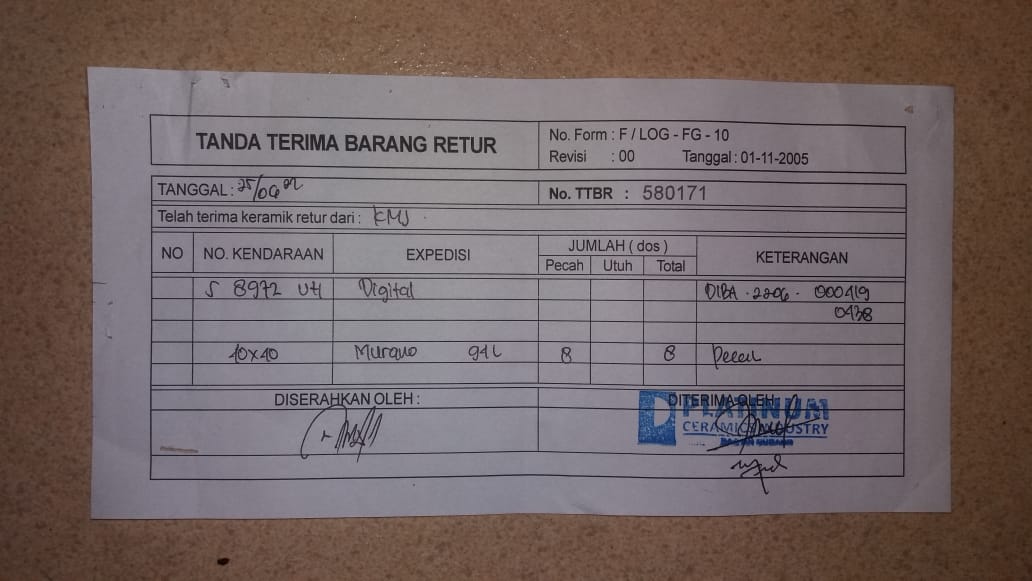 TANDA TERIMA BARANG RETUR
No. Form : F / LOG - FG - 10
Revisi : 00 Tanggal : 01-11-2005
TANGGAL : 25/06 22
No. TTBR : 580171
Telah terima keramik retur dari : KMJ
NO NO. KENDARAAN EXPEDISI JUMLAH ( dos ) KETERANGAN
Pecah Utuh Total
S 8972 Digital DIBA - 2206 - 000419
0438
40x40 8 8
DISERAHKAN OLEH : DITERIMA OLEH
PLATINUM
CERAMICS INDUSTRY